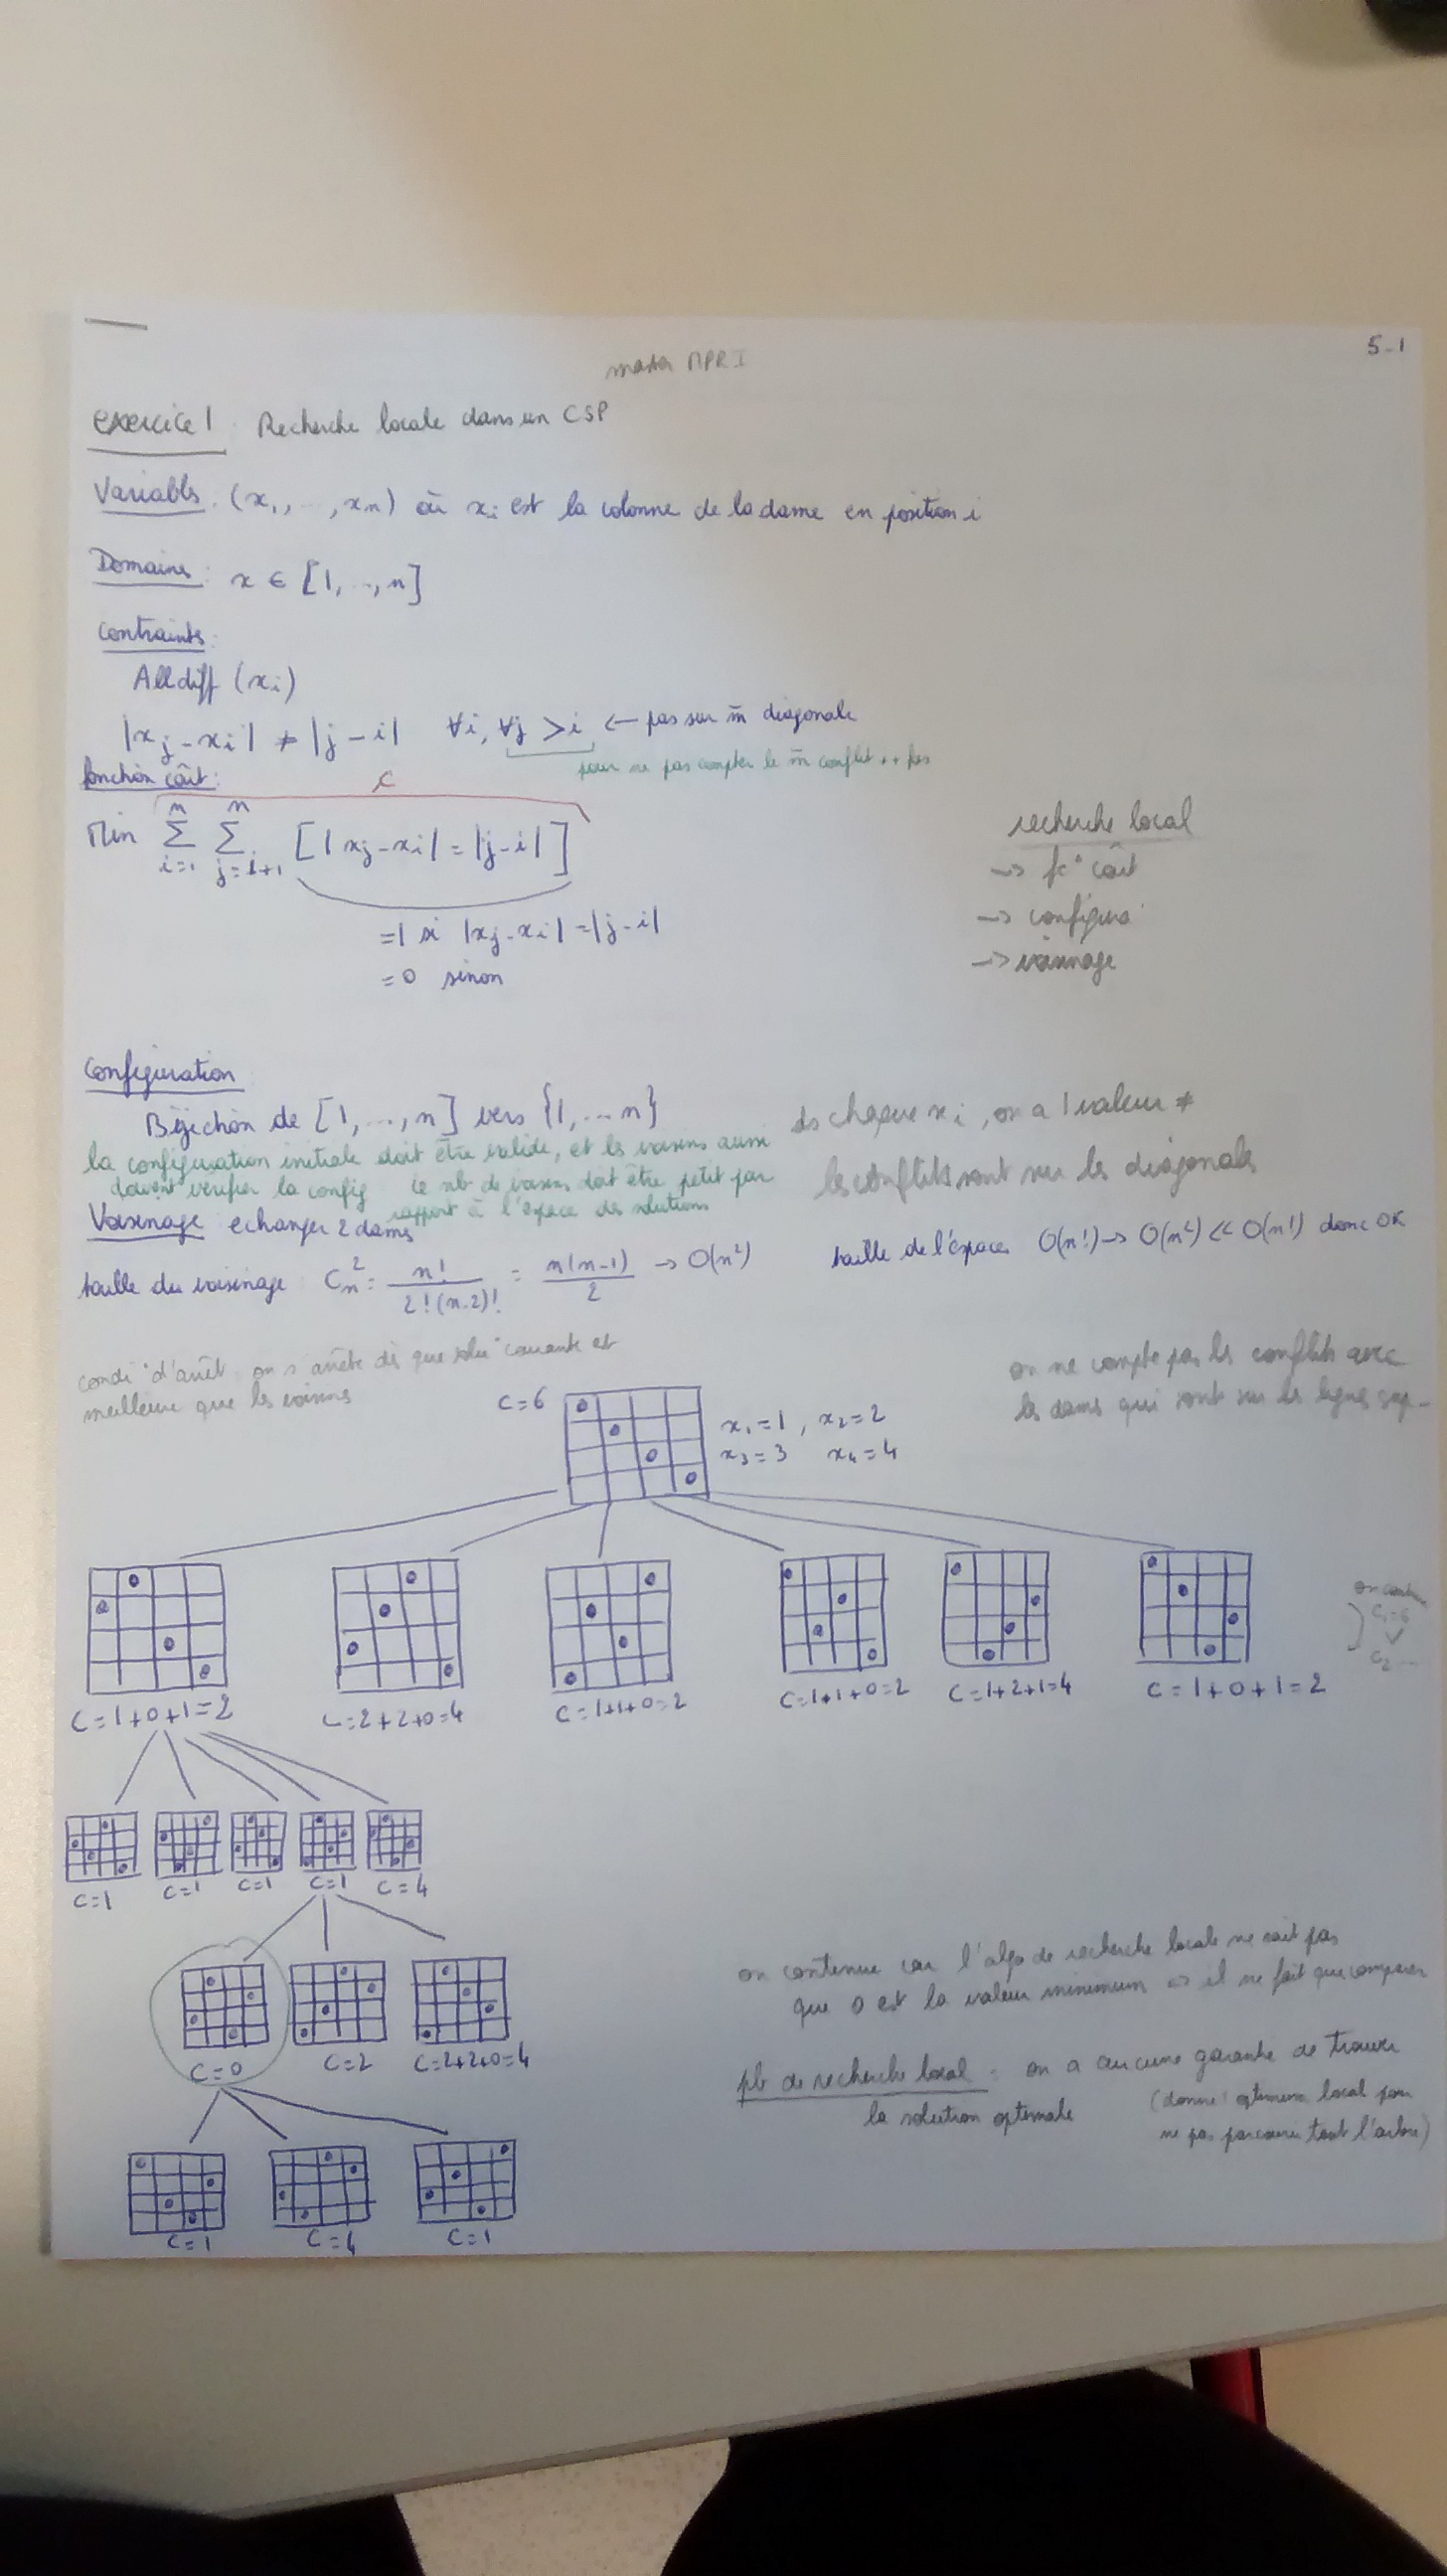 5-1
master MPRI
exercice 1 : Recherche locale dans un CSP
Variables : (x₁, ..., xn) où xi est la colonne de la dame en position i
Domaines : x ∈ [1, .., n]
Contraintes :
Alldiff (xi)
|xj - xi| ≠ |j - i| ∀i, ∀j > i ← pas sur m̄ diagonale
pour ne pas compter le m̄ conflit ++ fois
fonction coût :
c
Min Σ(i=1..n) Σ(j=i+1..n) [|xj - xi| = |j - i|]
=1 si |xj - xi| = |j - i|
=0 sinon
recherche local
→ fc° coût
→ configura°
→ voisinage
Configuration
Bijection de [1, .., n] vers {1, ... n}
ds chaque xi, on a 1 valeur ≠
la configuration initiale doit être valide, et les voisins aussi
doivent vérifier la config le nb de voisins doit être petit par
rapport à l'espace des solutions
les conflits sont sur les diagonales
Voisinage echanger 2 dames
taille du voisinage : C²n = n! / 2!(n-2)! = n(n-1) / 2 → O(n²)
taille de l'espace O(n!) → O(n²) << O(n!) donc OK
condi° d'arrêt on s'arrête dès que solu° courante est
meilleure que les voisins
on ne compte pas les conflits avec
les dames qui sont sur les lignes sup-
C=6
x₁=1, x₂=2
x₃=3 x₄=4
C₁=6
C₂ ...
C=1+0+1=2
C=2+2+0=4
C=1+1+0=2
C=1+1+0=2
C=1+2+1=4
C=1+0+1=2
C=1
C=1
C=1
C=1
C=4
C=0
C=2
C=2+2+0=4
on continue car l'algo de recherche locale ne sait pas
que 0 est la valeur minimum ⇒ il ne fait que comparer
pb de recherche local : on a aucune garantie de trouver
la solution optimale
(donne 1 optimum local pour
ne pas parcourir tout l'arbre)
C=1
C=4
C=1